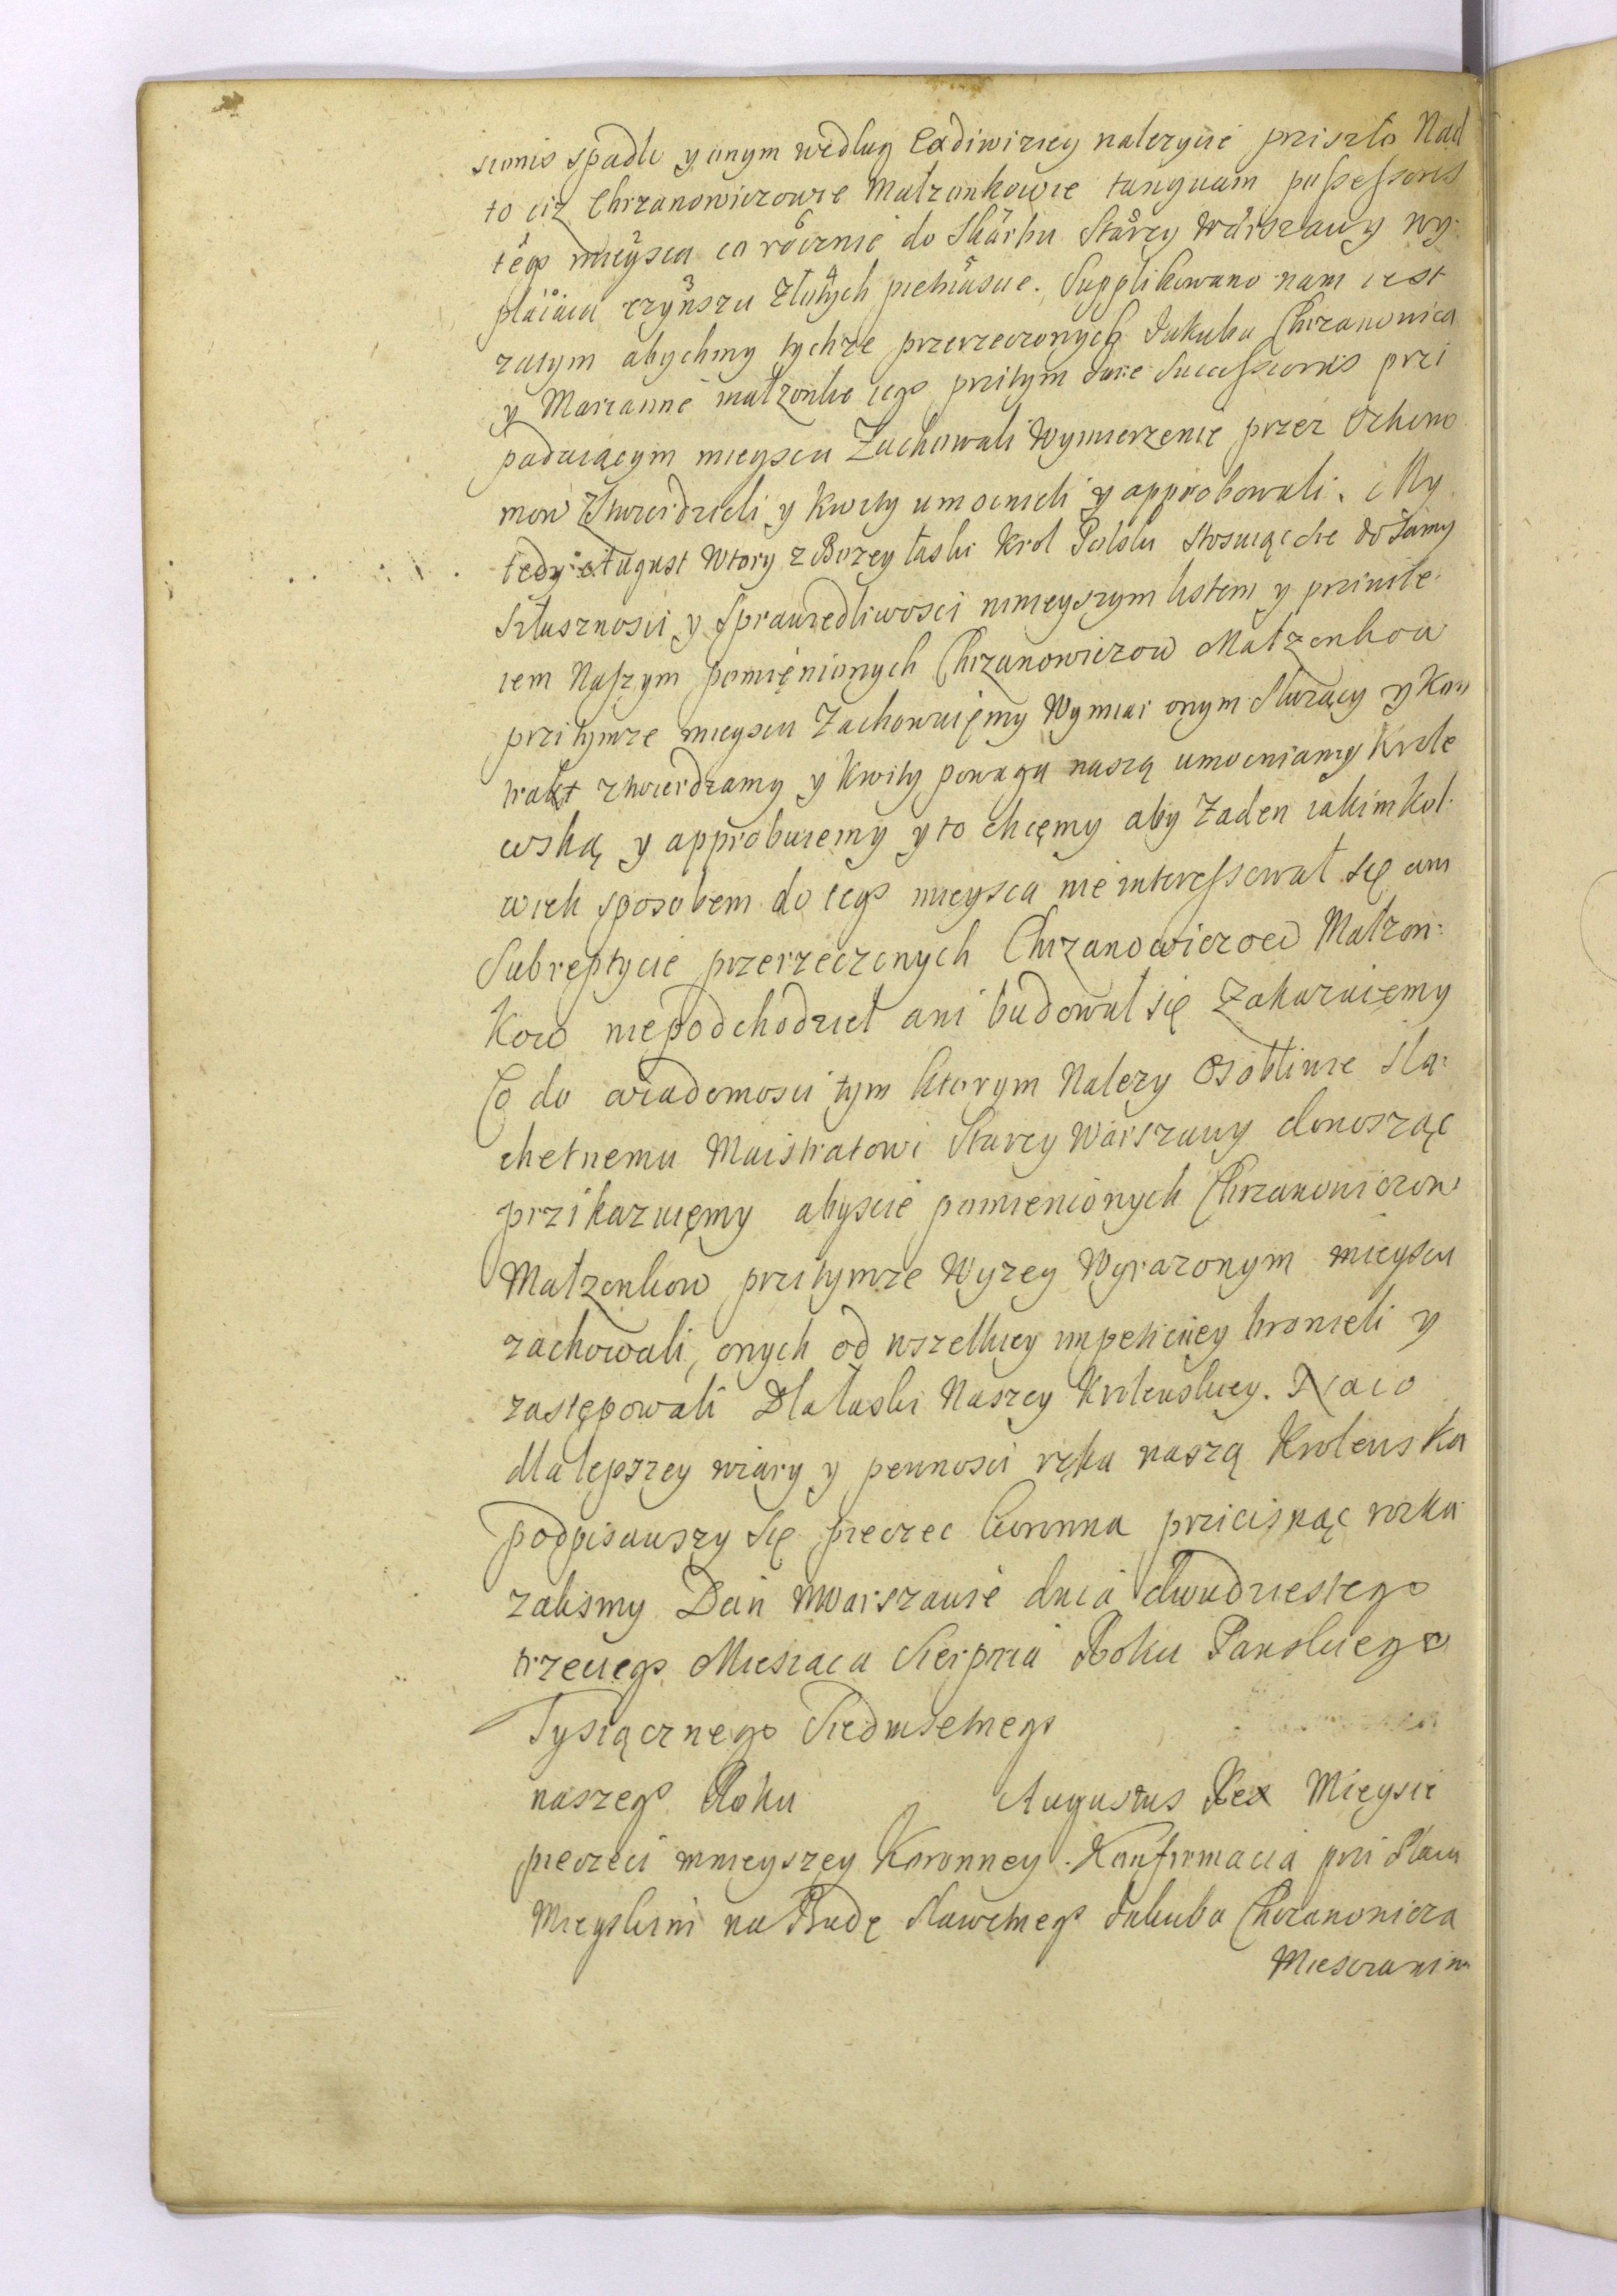 sionis spadłe y onym według Exdiwiziey nalezycie priszło Nad
to ciz Chrzanowiczowie Małzonkowie tanquam possessores
tego mieysca co rocznie do Skarbu Starey Warszawy wy
płaiaia czynszu złotych pietnascie. Supplikowano nam iest
zatym abychmy tychze przerzeczonych Jakuba Chrzanowica
y Marianne małzonke iego, przitym iure Successionis pri
padaiącym mieyscu Zachowali Wymierzenie przez
mow ztwierdzieli y kwity umocnieli y approbowali. My
tedy August Wtory z Bozey łaski Krol Polski stosuiąc sie do samy
Słusznosci y Sprawiedliwosci ninieyszym listem y prziwile
iem Naszym pomięnionych Chrzanowiczow Małzonkow
przitymze mieyscu Zachowuięmy Wymiar onym słuzący y Kon
trakt ztwierdzamy y kwity powagą naszą umocniamy Krole
wską y approbuiemy y to chcęmy aby Zaden iakimkol
wiek sposobem do tego mieysca nie interessował się ani
Subreptycie przerzeczonych Chrzanowiczow Małzon:
Kow niepodchodzieł ani budował się Zakazuięmy
Co do wiadomosci tym ktorym Nalezy Osobliwie sla:
chetnemu Maistratowi Starey Warszawy donosząc
przikazuięmy abyscie pomienionych Chrzanowiczow
Małzonkow przitymze Wyzey Wyrazonym mieyscu
zachowali, onych od wszelkiey impeticiiey bronieli y
zastępowali Dla łaski Naszey Krolewskiey. Naco
dla lepszey wiary y pewnosci ręką naszą Krolewską
podpisawszy się pieczec koronna pricisnąc rozka
zalismy Dan wWarszawie dnia dwudziestego
trzeciego Miesiaca Sierpnia Roku Panskiego
Tysiącznego Siedmsetnego
naszego Roku Augustus Rex Mieysce
pieczeci mnieyszey Koronney. Konfirmacia pri Placu
Mieyskim na Budę sławetnego Jakuba Chrzanowicza
Miesczanina